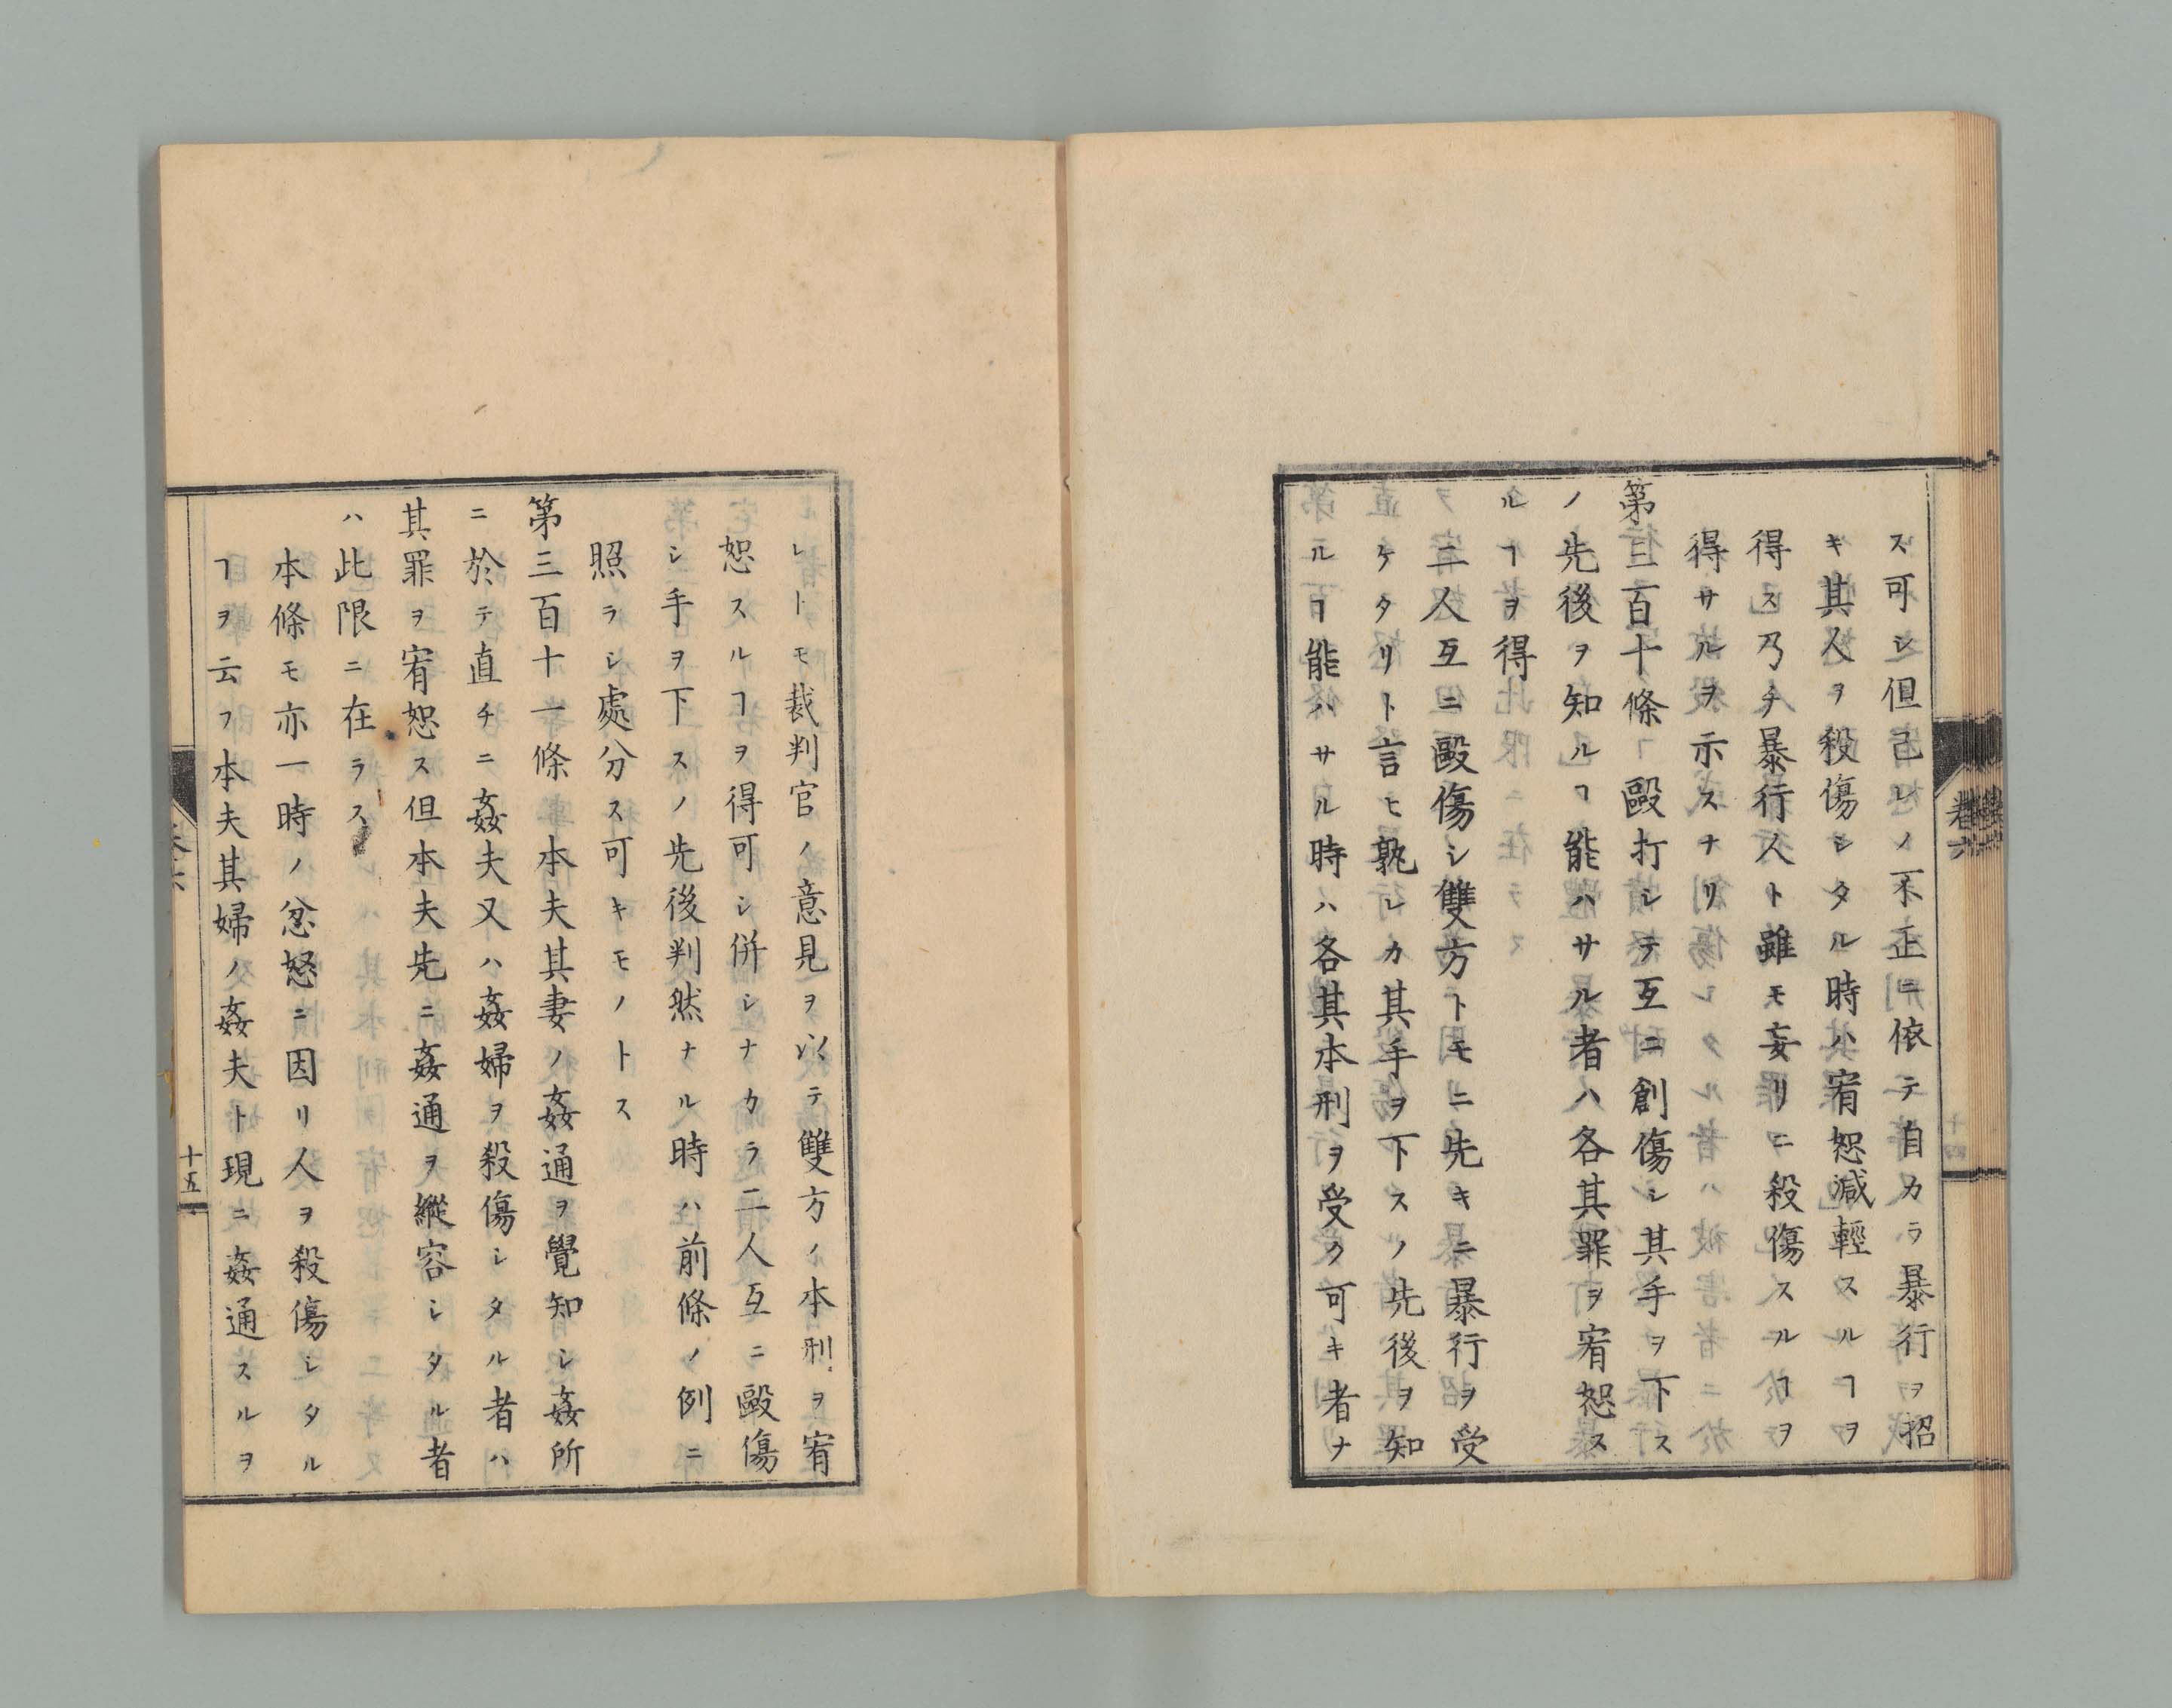 ス可シ但己レノ不正ニ依テ自カラ暴行ヲ招
キ其人ヲ殺傷シタル時ハ宥恕減輕スルヿヲ
得ス乃チ暴行人ト雖モ妄リニ殺傷スルヿヲ
得サルヲ示スナリ
第三百十條 毆打シテ互ニ創傷シ其手ヲ下ス
ノ先後ヲ知ルヿ能ハサル者ハ各其罪ヲ宥恕ス
ルヿヲ得
二人互ニ毆傷シ雙方トモニ先キニ暴行ヲ受
ケタリト言ヒ孰レカ其手ヲ下スノ先後ヲ知
ルヿ能ハサル時ハ各其本刑ヲ受ク可キ者ナ
卷六
レトモ裁判官ノ意見ヲ以テ雙方ノ本刑ヲ宥
恕スルヿヲ得可シ併シナカラ二人互ニ毆傷
シ手ヲ下スノ先後判然ナル時ハ前條ノ例ニ
照ラシ處分ス可キモノトス
第三百十一條 本夫其妻ノ姦通ヲ覺知シ姦所
ニ於テ直チニ姦夫又ハ姦婦ヲ殺傷シタル者ハ
其罪ヲ宥恕ス但本夫先ニ姦通ヲ縱容シタル者
ハ此限ニ在ラス
本條モ亦一時ノ忿怒ニ因リ人ヲ殺傷シタル
ヿヲ云フ本夫其婦ノ姦夫ト現ニ姦通スルヲ
十五